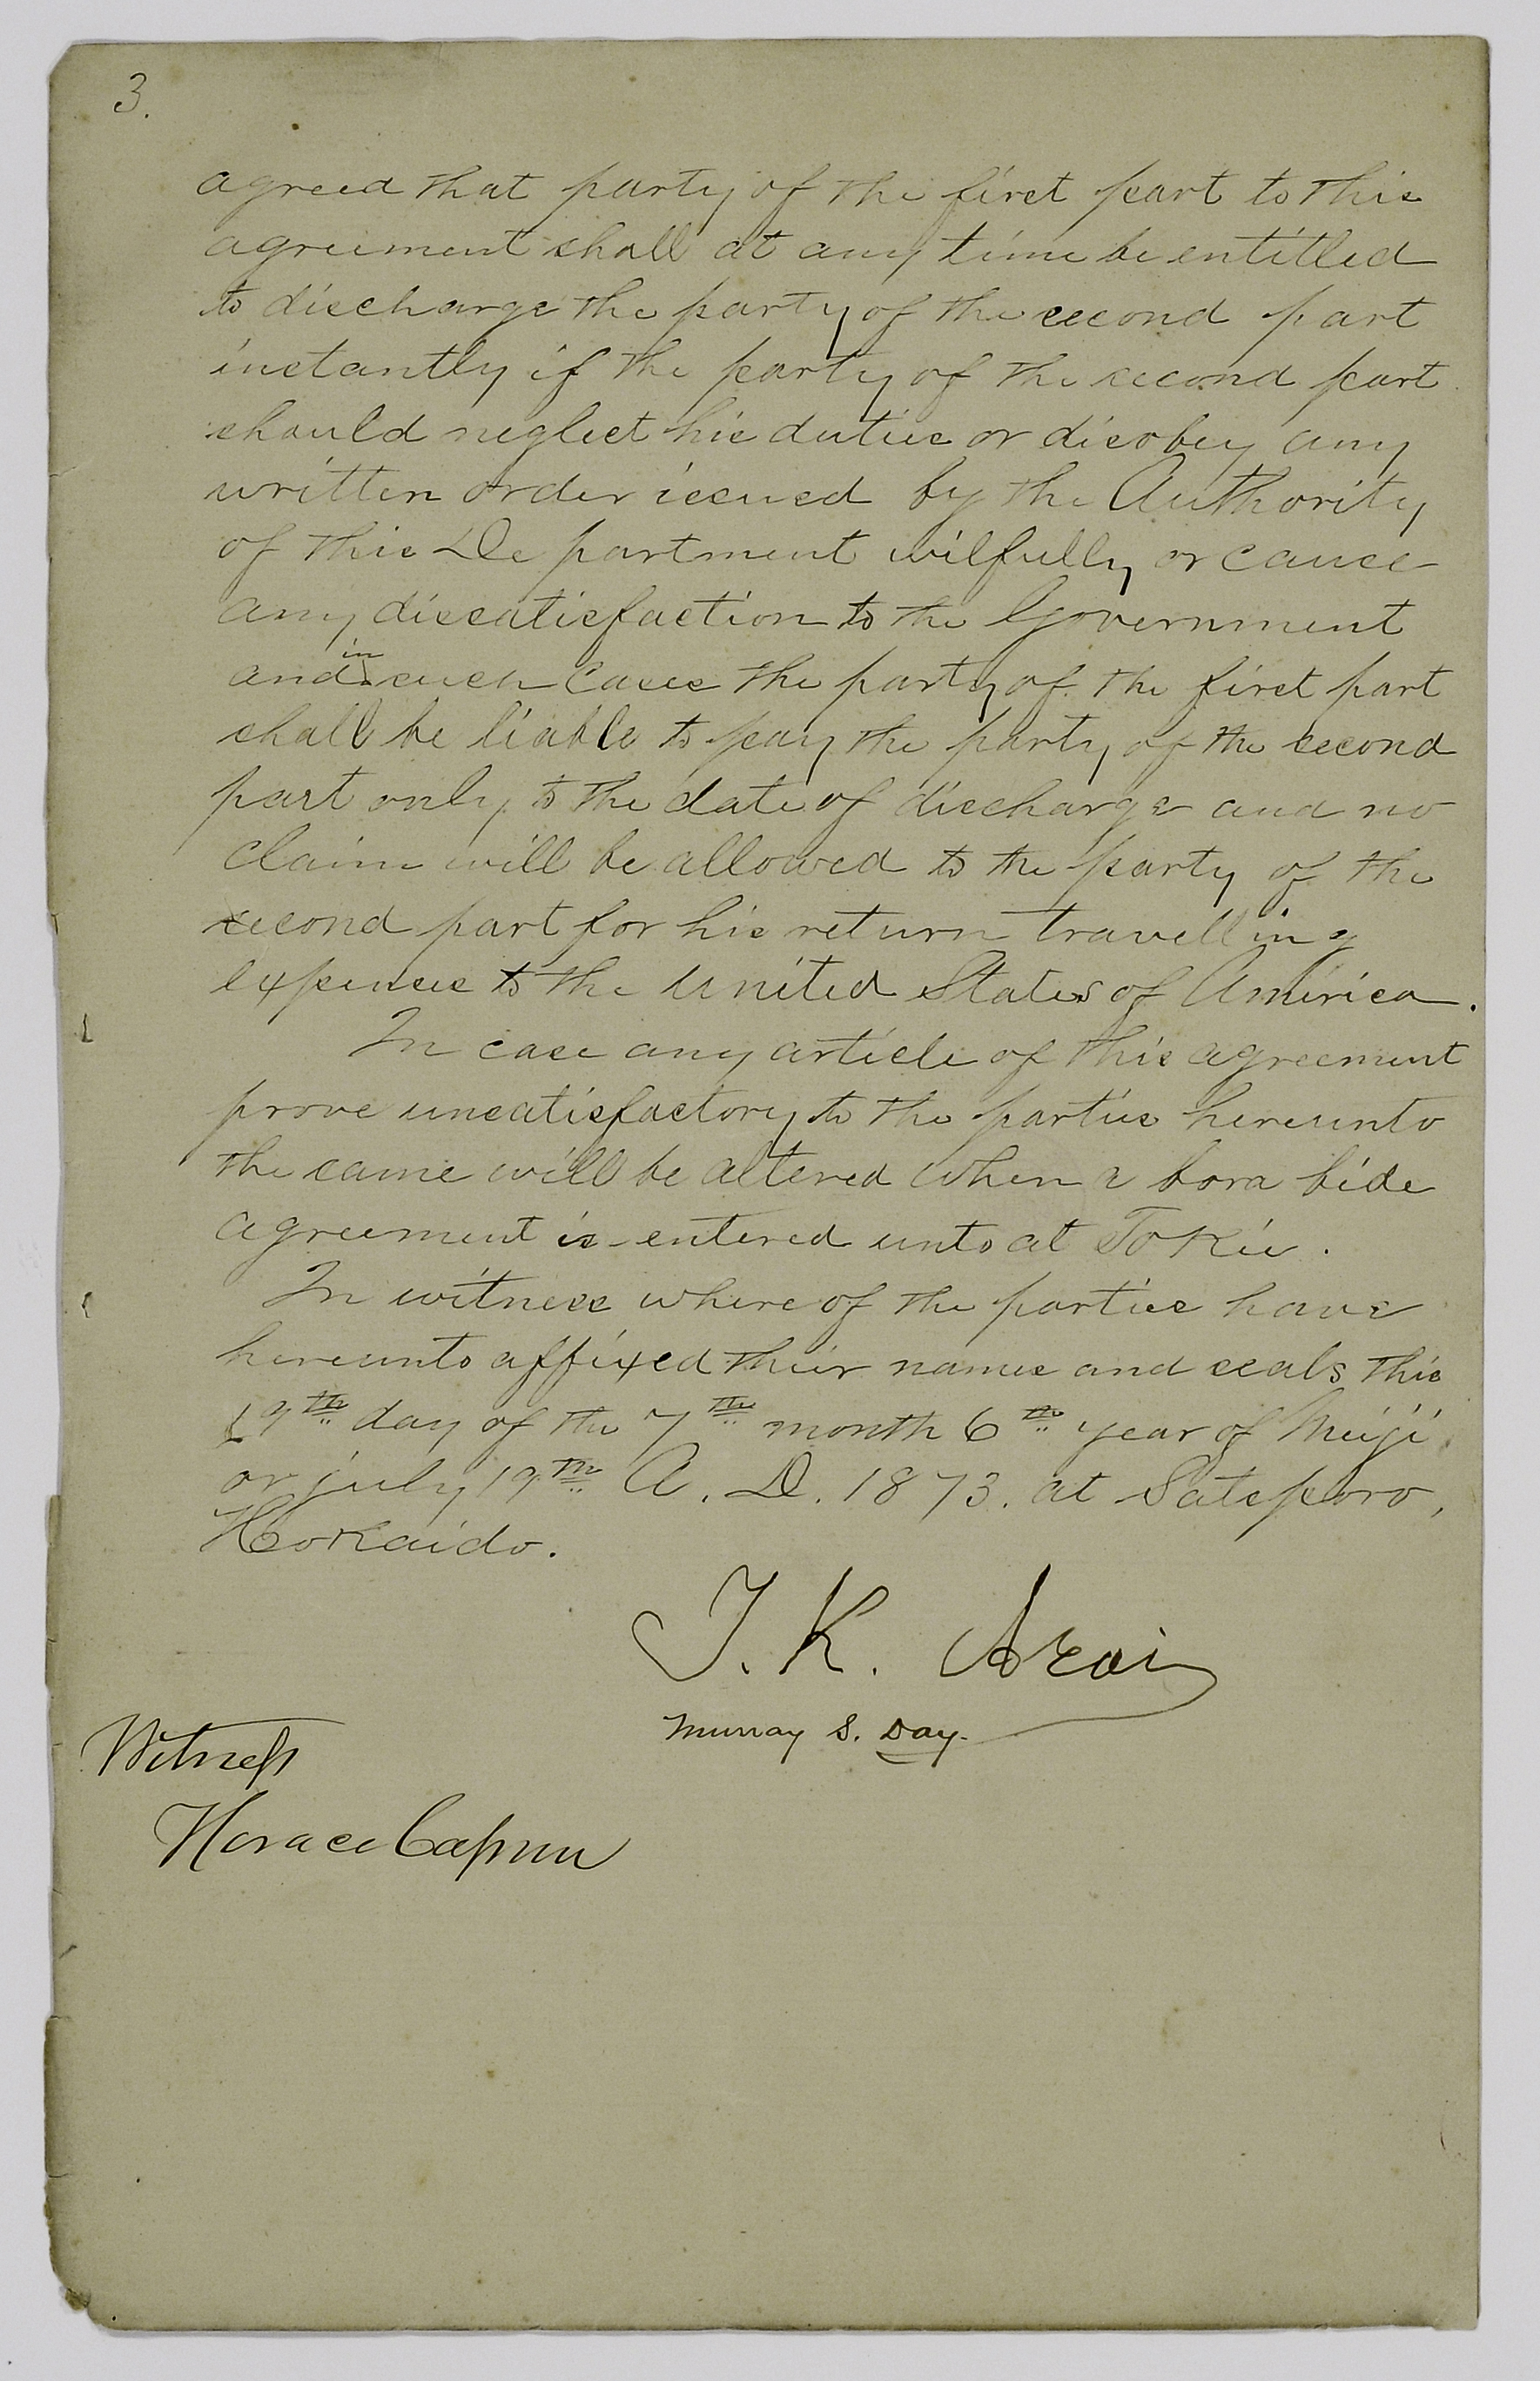 3.
agreed that party of the first part to this
agreement shall at any time be entitled
to discharge the party of the second part
instantly if the party of the second part
should neglect his duties or disobey any
written order issued by the Authority
of this Department wilfully or cause
any dissatisfaction to the Government
and in such cases the party of the first part
shall be liable to pay the party of the second
part only to the date of discharge and no
claim will be allowed to the party of the
second part for his return travelling
expenses to the United States of America.
In case any article of this agreement
prove unsatisfactory to the parties hereunto
the same will be altered when a bona fide
agreement is entered unto at Tokie.
In witness whereof the parties have
hereunto affixed their names and seals this
19th day of the 7th month 6th year of Meiji
or july 19th A. D. 1873. at Satsporo,
Hokaido.
T. K. Arai
Murray S. Day.
Witness
Horace Capron